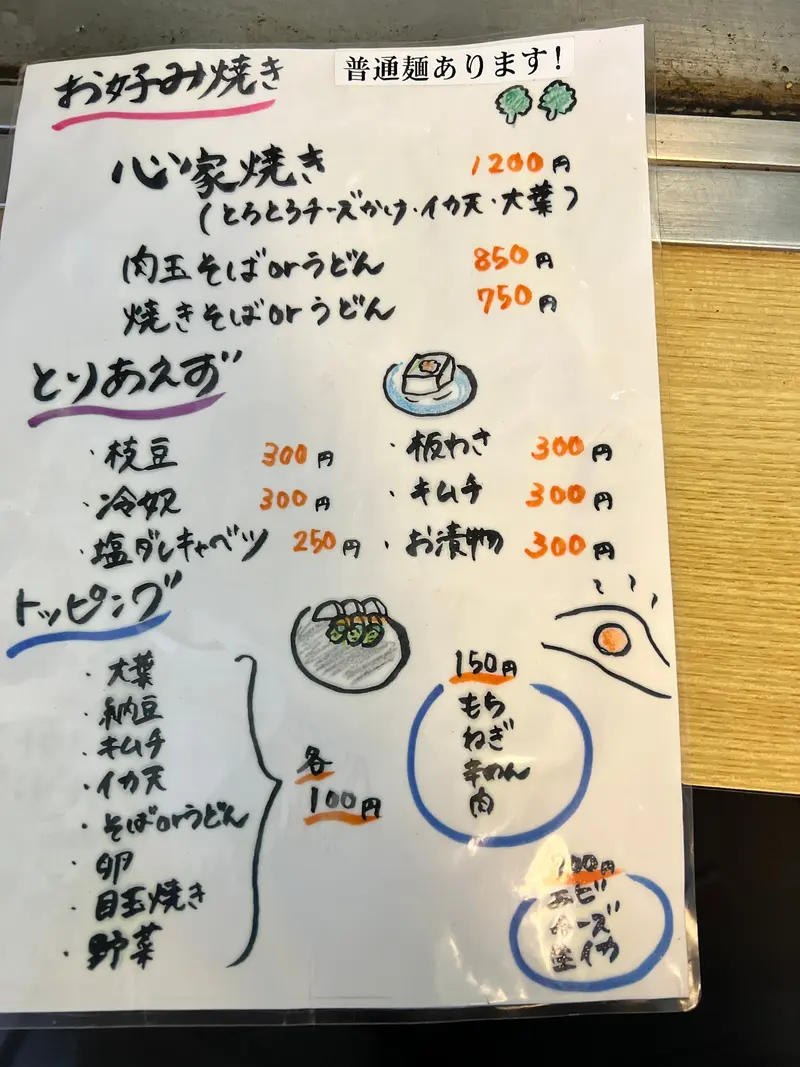 お好み焼き
普通麺あります!
心家焼き 1200円
(とろとろチーズかけ・イカ天・大葉)
肉玉そばorうどん 850円
焼きそばorうどん 750円
とりあえず
・枝豆 300円 ・板わさ 300円
・冷奴 300円 ・キムチ 300円
・塩ダレキャベツ 250円 ・お漬物 300円
トッピング
・大葉
・納豆
・キムチ
・イカ天
・そばorうどん
・卵
・目玉焼き
・野菜
各
100円
150円
もち
ねぎ
辛めん
肉
200円
エビ
チーズ
生イカ